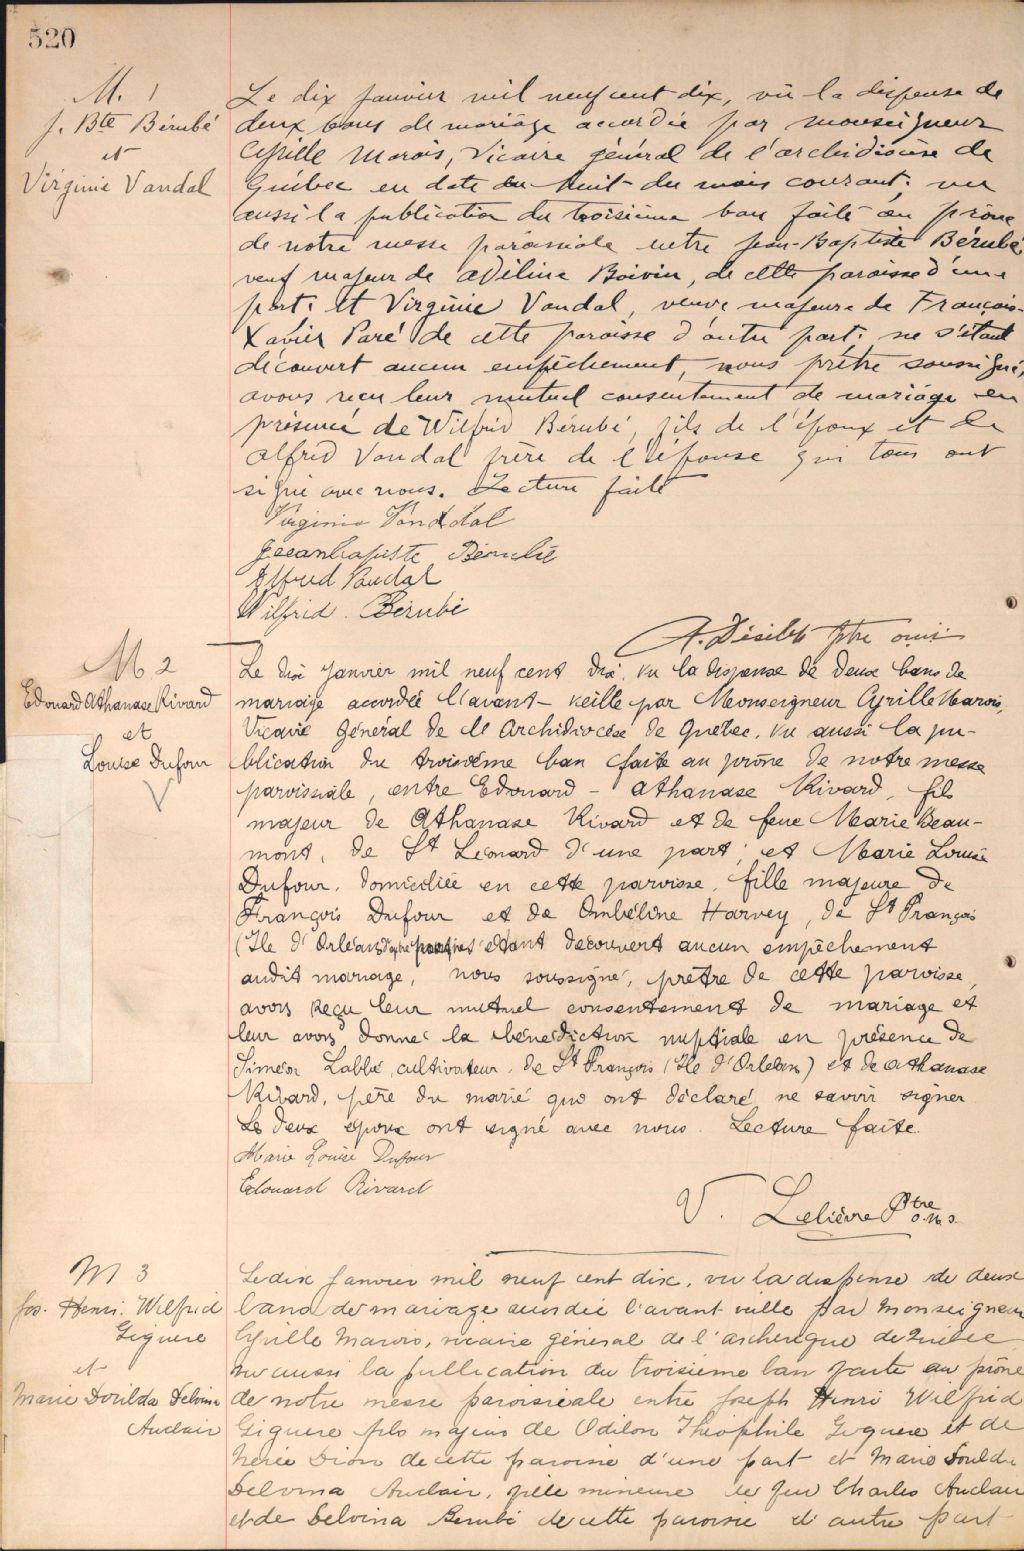 520
M. 1
J. Bte Bérubé
et
Virginie Vandal
Le dix janvier mil neuf cent dix, vu la dispense de
deux bans de mariage accordée par monseigneur
Cyrille Marois, Vicaire général de l'archidiocèse de
Québec en date du huit du mois courant; vu
aussi la publication du troisième ban faite au prône
de notre messe paroissiale entre Jean-Baptiste Bérubé
veuf majeur de Adéline Boivin, de cette paroisse d'une
part; et Virginie Vandal, veuve majeure de François-
Xavier Paré de cette paroisse d'autre part; ne s'étant
découvert aucun empêchement, nous prêtre soussigné,
avons reçu leur mutuel consentement de mariage en
présence de Wilfrid Bérubé, fils de l'époux et de
Alfred Vandal frère de l'épouse qui tous ont
signé avec nous. Lecture faite
Virginie Vandal
Jeanbaptiste Bérubé
Alfred Vandal
Wilfrid Bérubé
A. Désilets ptre o.m.i
M 2
Edouard Athanase Rivard
et
Louise Dufour
Le dix janvier mil neuf cent dix, vu la dispense de deux bans de
mariage accordée l'avant-veille par Monseigneur Cyrille Marois,
Vicaire Général de l'Archidiocèse de Québec, vu aussi la pu-
blication du troisième ban faite au prône de notre messe
paroissiale, entre Edouard-Athanase Rivard, fils
majeur de Athanase Rivard et de feue Marie Beau-
mont, de St Léonard d'une part; et Marie Louise
Dufour, domiciliée en cette paroisse, fille majeure de
François Dufour et de Ombéline Harvey, de St François
(Ile d'Orléans) d'autre part; ne s'étant découvert aucun empêchement
audit mariage, nous soussigné, prêtre de cette paroisse,
avons reçu leur mutuel consentement de mariage et
leur avons donné la bénédiction nuptiale en présence de
Siméon Labbé, cultivateur, de St François (Ile d'Orléans) et de Athanase
Rivard, père du marié qui ont déclaré ne savoir signer
Les deux époux ont signé avec nous. Lecture faite.
Marie Louise Dufour
Edouard Rivard
V. Lelièvre Ptre
o.m.i.
M 3
Jos. Henri Wilfrid
Giguere
et
Marie Dorilda Delvina
Auclair
Le dix janvier mil neuf cent dix, vu la dispense de deux
bans de mariage accordée l'avant veille par Monseigneur
Cyrille Marois, vicaire général de l'archevêque de Québec
vu aussi la publication du troisième ban faite au prône
de notre messe paroissiale entre Joseph Henri Wilfrid
Giguere fils majeur de Odilon Théophile Giguere et de
Dion de cette paroisse d'une part et Marie Dorilda
Delvina Auclair, fille mineure de feu Charles Auclair
et de Delvina Berubé de cette paroisse d'autre part